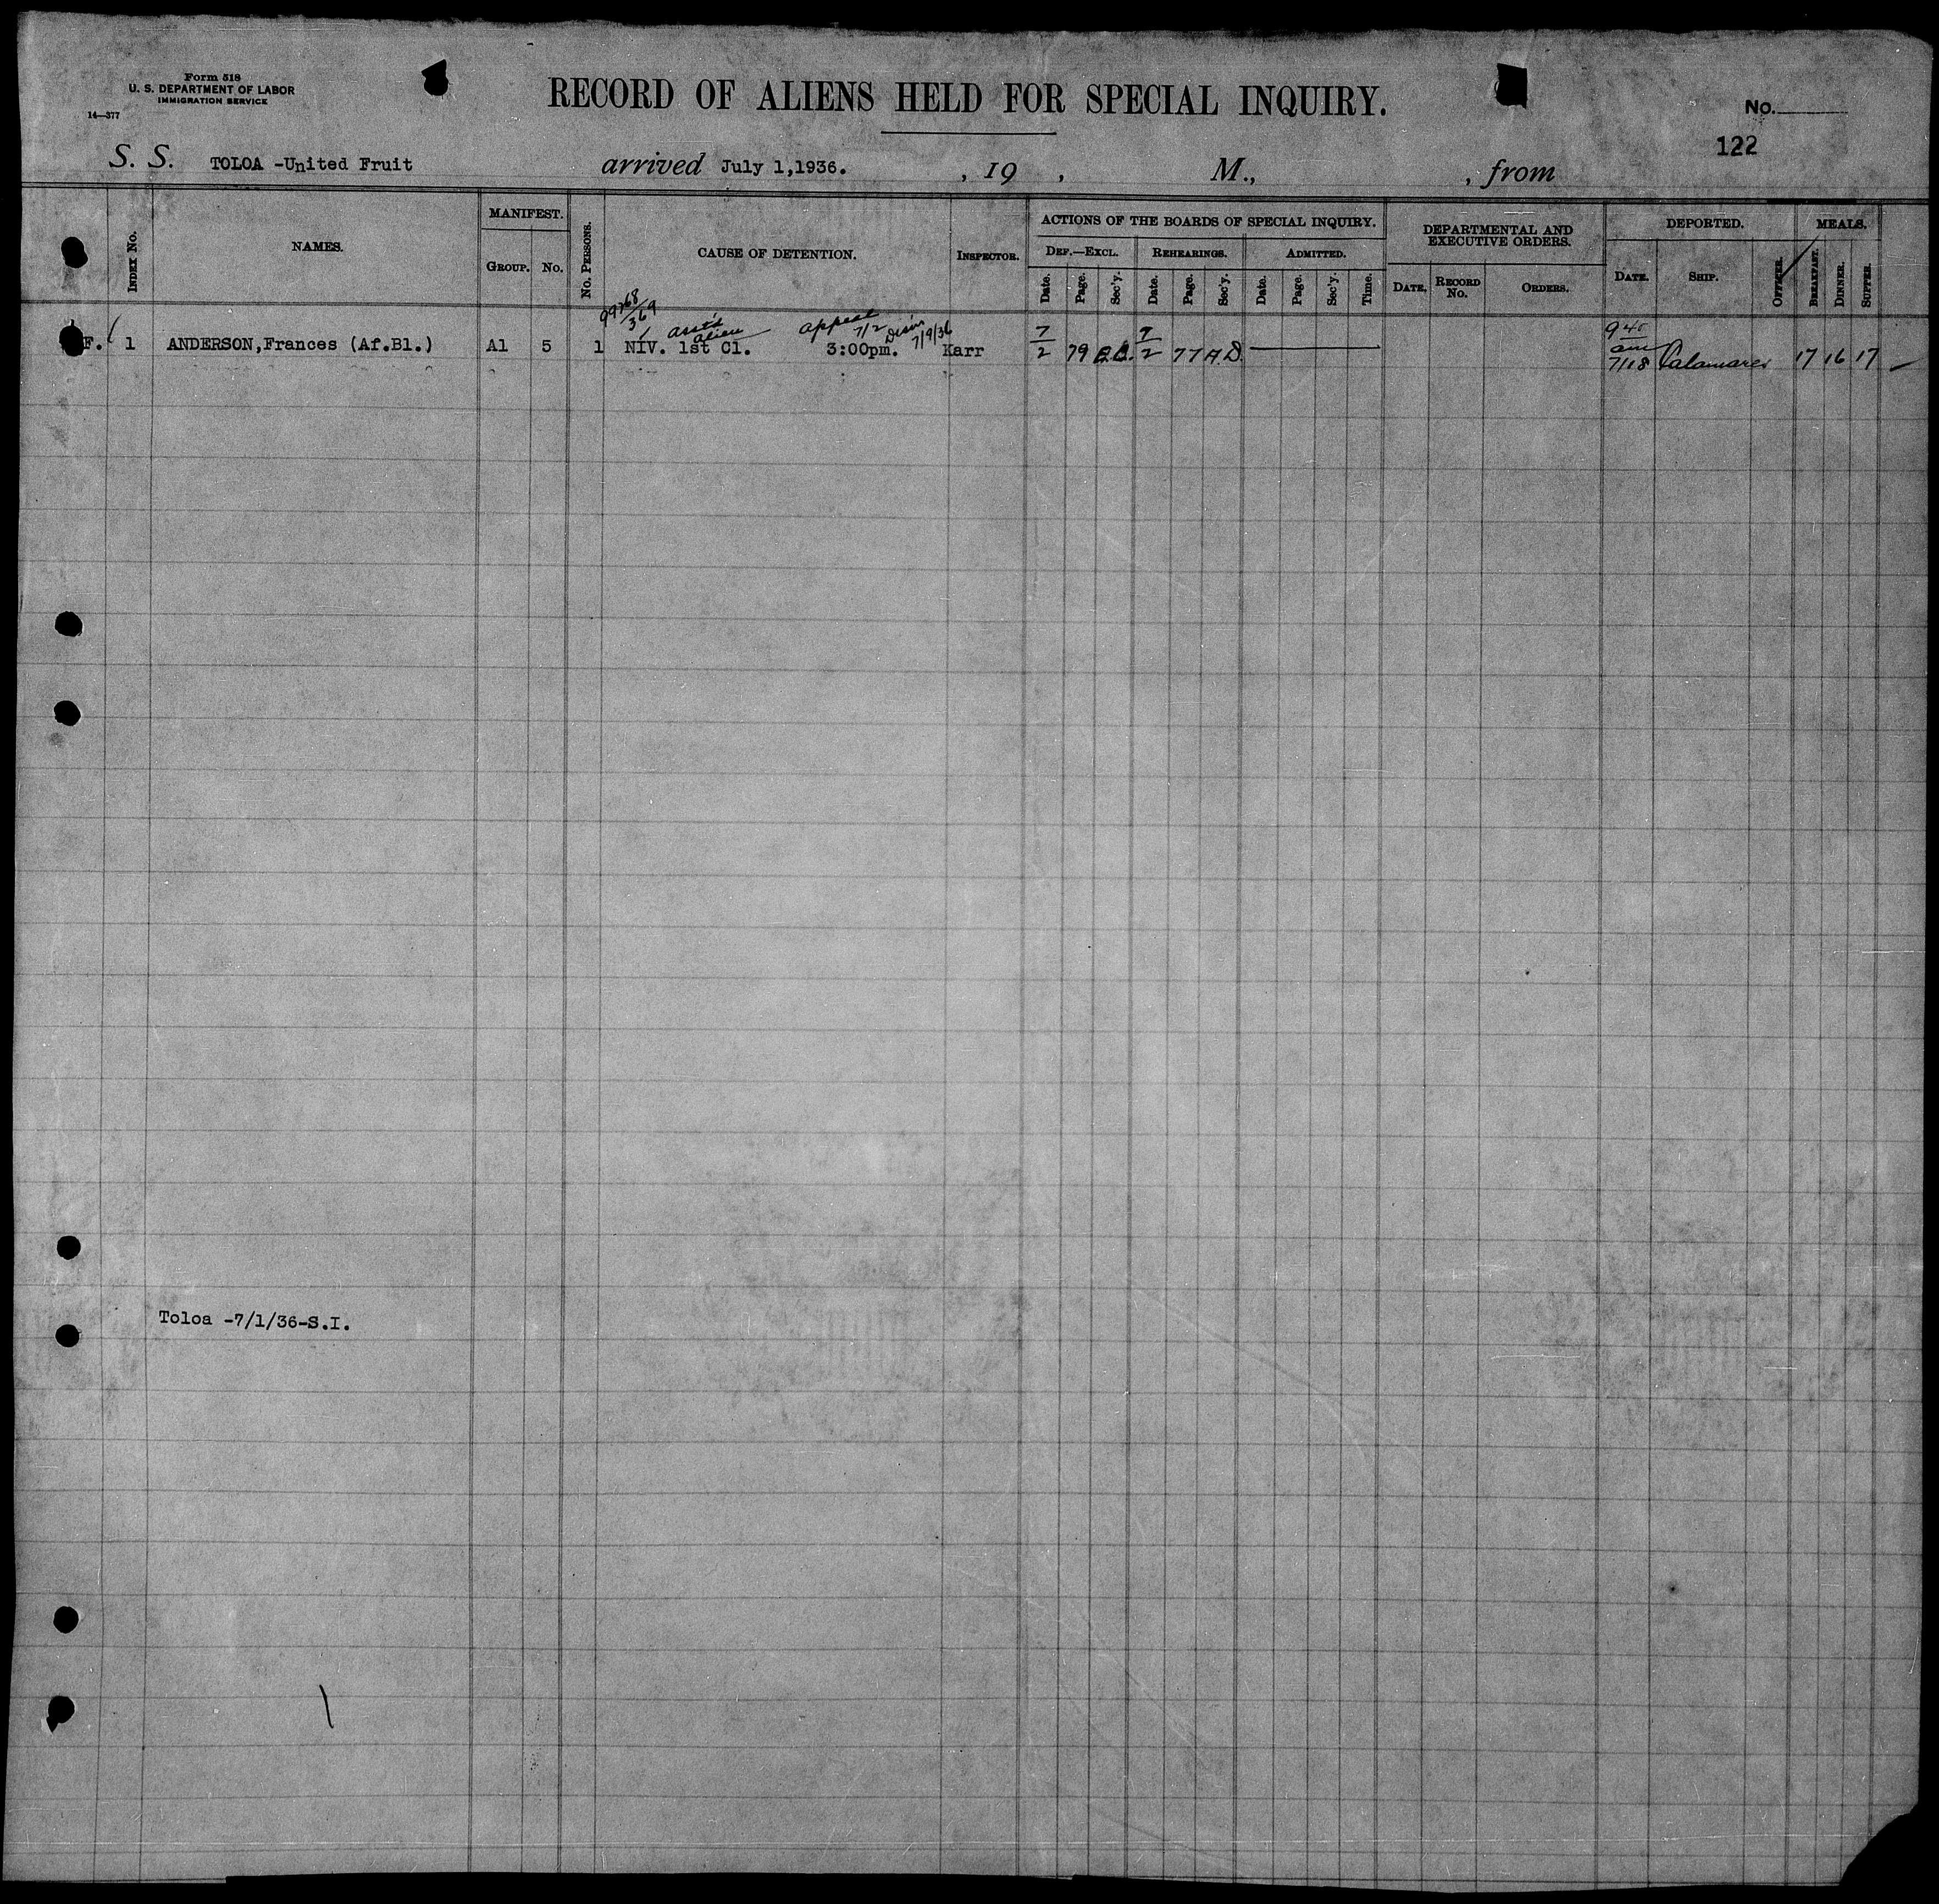 Form 518
U. S. DEPARTMENT OF LABOR
IMMIGRATION SERVICE
14—377
RECORD OF ALIENS HELD FOR SPECIAL INQUIRY.
No.
122
S. S. TOLOA -United Fruit arrived July 1,1936. , 19 , M., , from
INDEX No.
NAMES.
MANIFEST.
GROUP. No.
No. PERSONS.
CAUSE OF DETENTION.
INSPECTOR.
ACTIONS OF THE BOARDS OF SPECIAL INQUIRY.
DEF.—EXCL. REHEARINGS. ADMITTED.
Date. Page. Sec'y. Date. Page. Sec'y. Date. Page. Sec'y. Time.
DEPARTMENTAL AND
EXECUTIVE ORDERS.
DATE. RECORD No. ORDERS.
DEPORTED.
DATE. SHIP. OFFICER.
MEALS.
BREAKFAST. DINNER. SUPPER.
99768/369
appeal 7/2 7/9/36
alien
9 40 am
F. 1 ANDERSON,Frances (Af.Bl.) A1 5 1 NIV. 1st Cl. 3:00pm. Karr 7/2 79 7/2 77 A.D. 7/18 Calamares 17 16 17
Toloa -7/1/36-S.I.